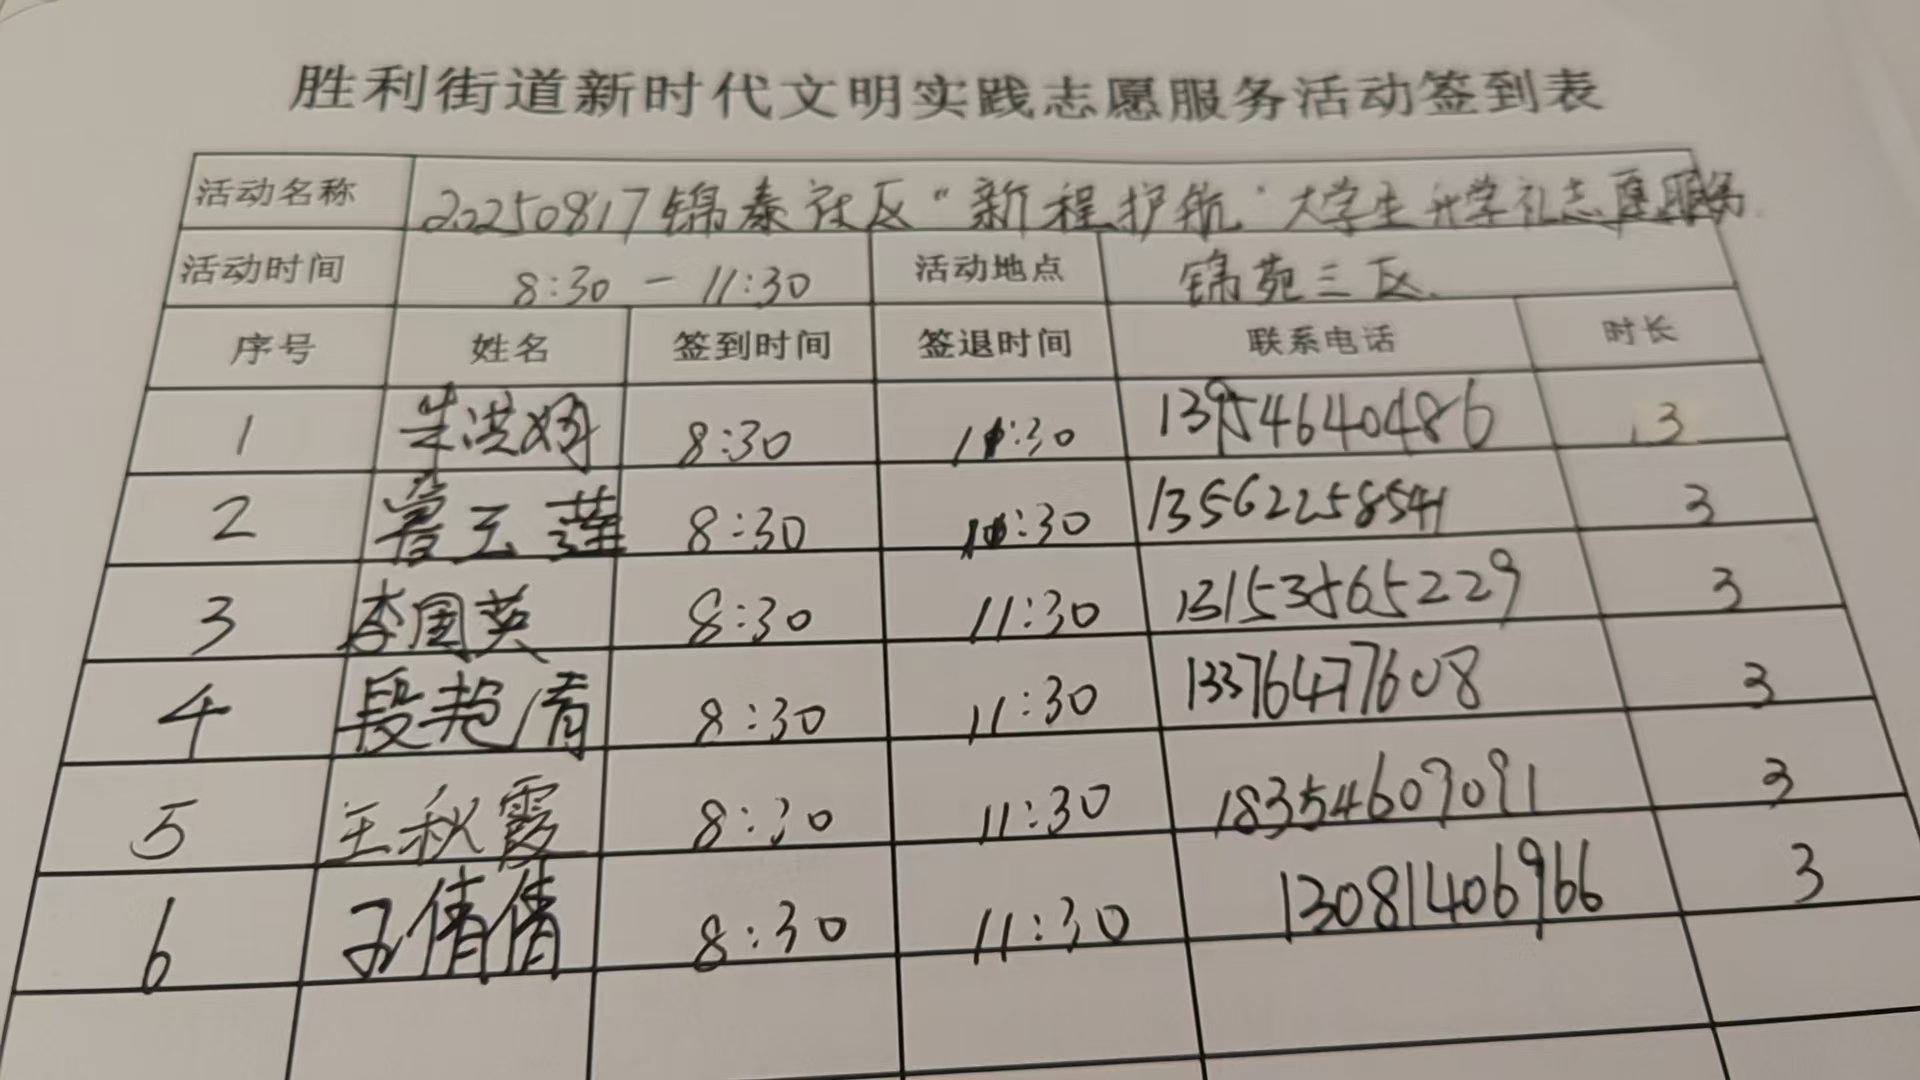 胜利街道新时代文明实践志愿服务活动签到表
活动名称 20250817锦泰社区“新程护航”大学生升学礼志愿服务
活动时间 8:30 — 11:30 活动地点 锦苑三区
序号 姓名 签到时间 签退时间 联系电话 时长
1 朱洪娟 8:30 11:30 13954640486 3
2 曾玉莲 8:30 11:30 13562258541 3
3 李国英 8:30 11:30 13153865229 3
4 段艳青 8:30 11:30 13376477608 3
5 王秋霞 8:30 11:30 18354609091 3
6 孟倩倩 8:30 11:30 13081406966 3